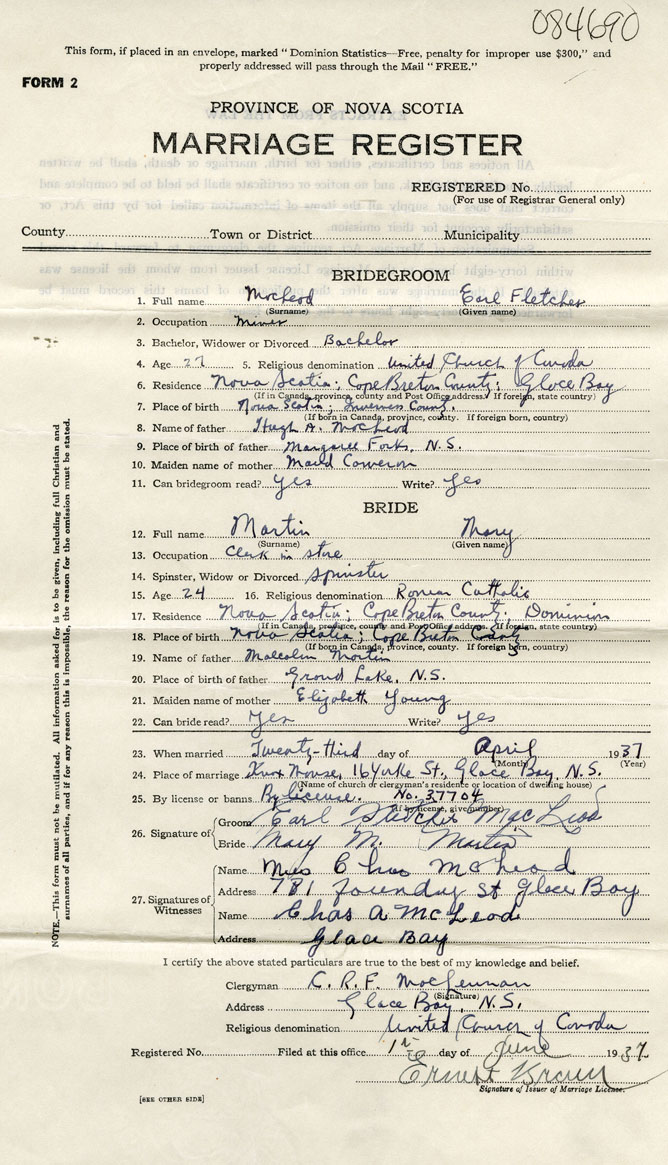 084690
This form, if placed in an envelope, marked "Dominion Statistics—Free, penalty for improper use $300," and
properly addressed will pass through the Mail "FREE."
FORM 2
PROVINCE OF NOVA SCOTIA
MARRIAGE REGISTER
REGISTERED No.
(For use of Registrar General only)
County Town or District Municipality
BRIDEGROOM
1. Full name MacLeod Earl Fletcher
(Surname) (Given name)
2. Occupation Miner
3. Bachelor, Widower or Divorced Bachelor
4. Age 27 5. Religious denomination United Church of Canada
6. Residence Nova Scotia; Cape Breton County; Glace Bay
(If in Canada, province, county and Post Office address. If foreign, state country)
7. Place of birth Nova Scotia; Inverness County.
(If born in Canada, province, county. If foreign born, country)
8. Name of father Hugh A. MacLeod
9. Place of birth of father Margaree Forks, N.S.
10. Maiden name of mother Maud Cameron
11. Can bridegroom read? Yes Write? Yes
BRIDE
12. Full name Martin Mary
(Surname) (Given name)
13. Occupation Clerk in store
14. Spinster, Widow or Divorced Spinster
15. Age 24 16. Religious denomination Roman Catholic
17. Residence Nova Scotia; Cape Breton County. Dominion
(If in Canada, province, county and Post Office address. If foreign, state country)
18. Place of birth Nova Scotia; Cape Breton County
(If born in Canada, province, county. If foreign born, country)
19. Name of father Malcolm Martin
20. Place of birth of father Grand Lake, N.S.
21. Maiden name of mother Elizabeth Young
22. Can bride read? Yes Write? Yes
23. When married Twenty-third day of April 1937
(Month) (Year)
24. Place of marriage Knox Manse, 16 Yorke St., Glace Bay, N.S.
(Name of church or clergyman's residence or location of dwelling house)
25. By license or banns By license. No. 37764
(If by license, give number)
26. Signature of Groom Earl Fletcher MacLeod
Bride Mary M. Martin
27. Signatures of Witnesses
Name Mrs Chas McLeod
Address 781 Foundry St Glace Bay
Name Chas A McLeod
Address Glace Bay
I certify the above stated particulars are true to the best of my knowledge and belief.
Clergyman C. R. F. MacLennan
(Signature)
Address Glace Bay, N.S.
Religious denomination United Church of Canada
Registered No. Filed at this office 1st day of June 1937
Ernest Brown
Signature of Issuer of Marriage License.
[SEE OTHER SIDE]
NOTE.—This form must not be mutilated. All information asked for is to be given, including full Christian and
surnames of all parties, and if for any reason this is impossible, the reason for the omission must be stated.